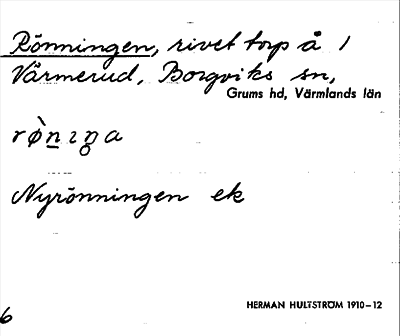 Rönningen, rivet torp å 1
Värmerud, Borgviks sn,
Grums hd, Värmlands län
Nyrönningen ek
HERMAN HULTSTRÖM 1910–12
6